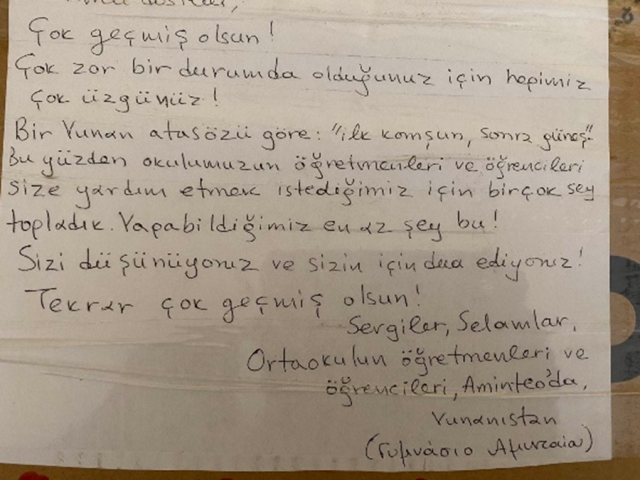 Çok geçmiş olsun!
Çok zor bir durumda olduğunuz için hepimiz
çok üzgünüz!
Bir Yunan atasözü göre: "ilk komşun, sonra güneş".
Bu yüzden okulumuzun öğretmenleri ve öğrencileri
size yardım etmek istediğimiz için birçok şey
topladık. Yapabildiğimiz en az şey bu!
Sizi düşünüyoruz ve sizin için dua ediyoruz!
Tekrar çok geçmiş olsun!
Sevgiler, Selamlar,
Ortaokulun öğretmenleri ve
öğrencileri, Aminteo'da,
Yunanıstan
(Γυμνάσιο Αμυνταίο)